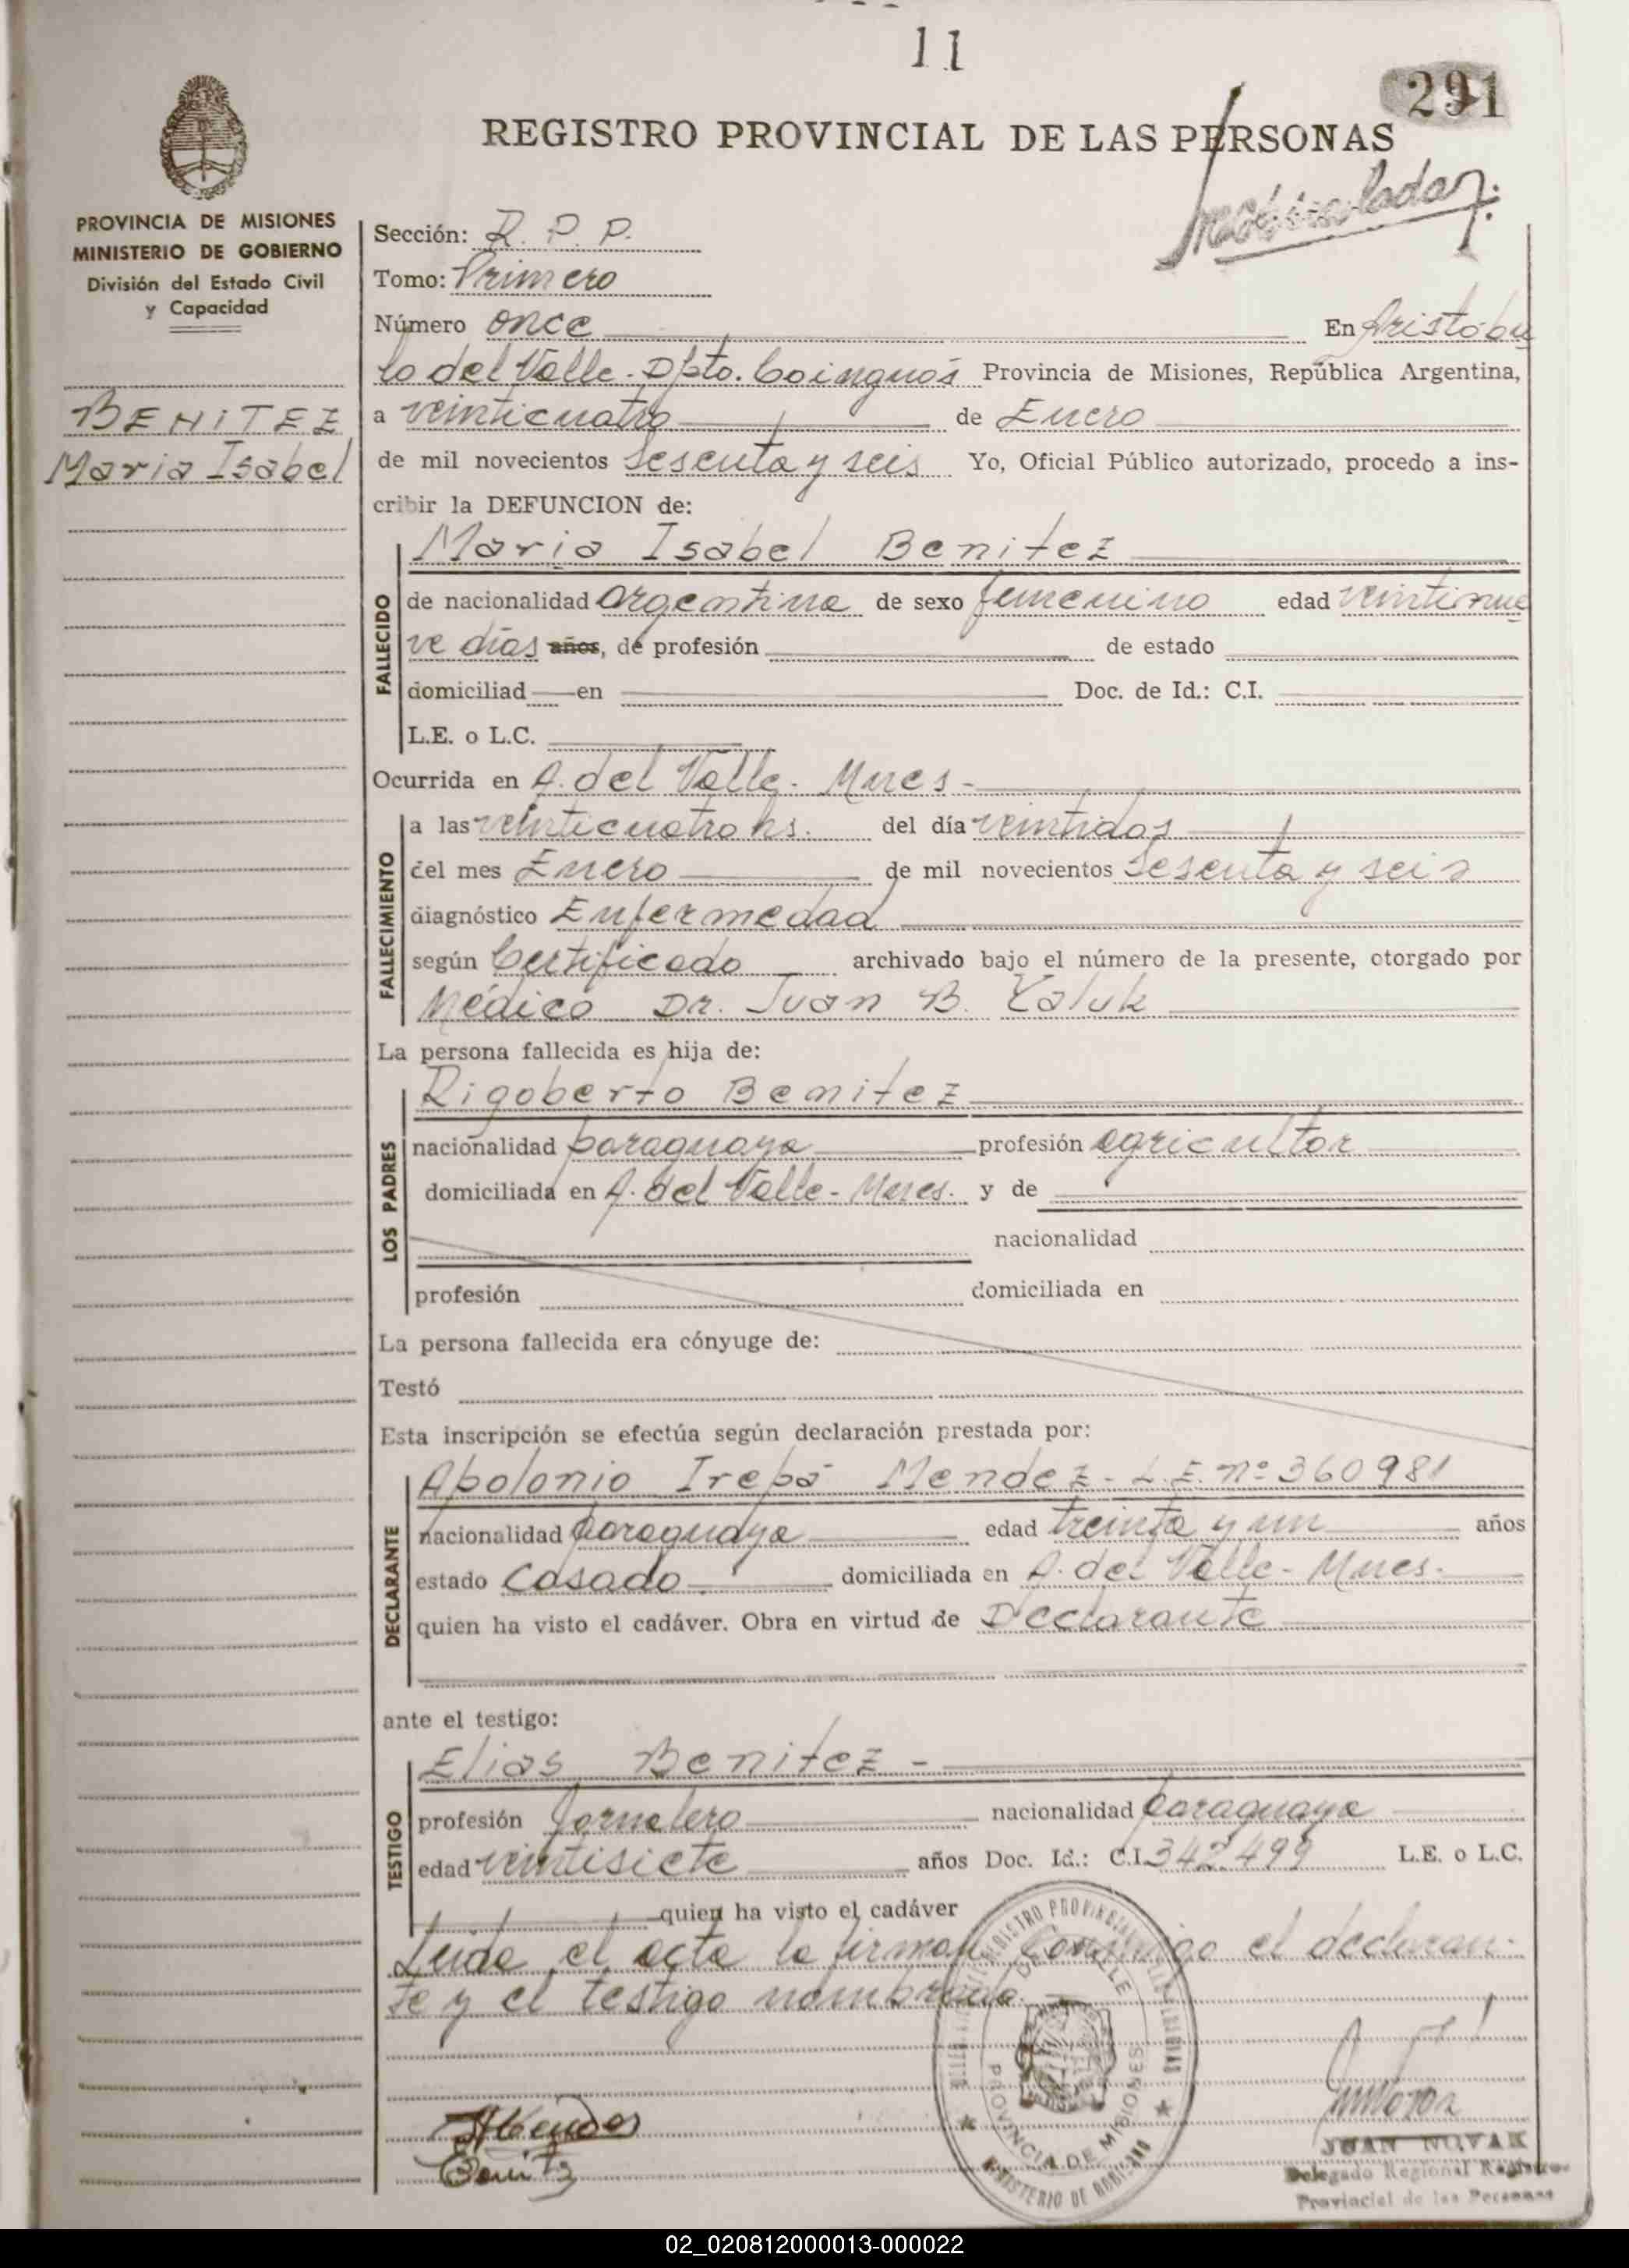 11
291
REGISTRO PROVINCIAL DE LAS PERSONAS
Matriculada
PROVINCIA DE MISIONES
MINISTERIO DE GOBIERNO
División del Estado Civil
y Capacidad
BENITEZ
Maria Isabel
Sección: R. P. P.
Tomo: Primero
Número once En Aristóbu
lo del Valle - Dpto. Cainguás Provincia de Misiones, República Argentina,
a veinticuatro de Enero
de mil novecientos Sesenta y seis Yo, Oficial Público autorizado, procedo a ins-
cribir la DEFUNCION de:
FALLECIDO
Maria Isabel Benitez
de nacionalidad argentina de sexo femenino edad veintinue
ve días años, de profesión de estado
domiciliad en Doc. de Id.: C.I.
L.E. o L.C.
Ocurrida en A. del Valle - Mnes -
FALLECIMIENTO
a las veinticuatro hs. del día veintidos
del mes Enero de mil novecientos Sesenta y seis
diagnóstico Enfermedad
según Certificado archivado bajo el número de la presente, otorgado por
Médico Dr. Juan B. Yaluk
La persona fallecida es hija de:
LOS PADRES
Rigoberto Benitez
nacionalidad paraguaya profesión agricultor
domiciliada en A. del Valle - Mnes. y de
nacionalidad
profesión domiciliada en
La persona fallecida era cónyuge de:
Testó
Esta inscripción se efectúa según declaración prestada por:
DECLARANTE
Apolonio Irepá Mendez - L.E. nº 360981
nacionalidad paraguaya edad treinta y un años
estado Casado domiciliada en A. del Valle - Mnes.
quien ha visto el cadáver. Obra en virtud de Declarante
ante el testigo:
TESTIGO
Elias Benitez -
profesión Jornalero nacionalidad paraguaya
edad veintisiete años Doc. Id.: C.I. 342499 L.E. o L.C.
quien ha visto el cadáver
Leida el acta la firman conmigo el declaran-
te y el testigo nombrado.
REGISTRO PROVINCIAL DE LAS PERSONAS
PROVINCIA DE MISIONES
MINISTERIO DE GOBIERNO
AMendes
Benitz
JUAN NOVAK
Delegado Regional Registro
Provincial de las Personas
02_020812000013-000022